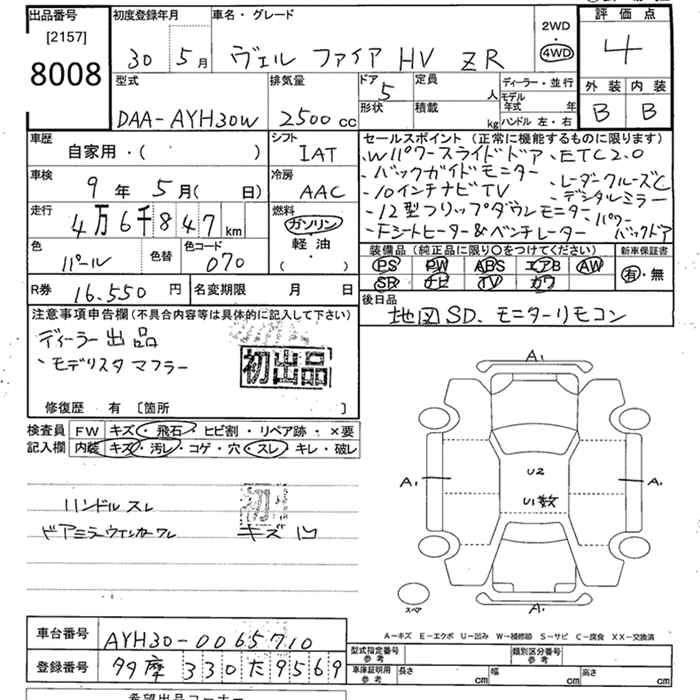 出品番号 初度登録年月 車名・グレード 2WD 評価点
[2157] 30 5月 ヴェルファイア HV ZR 4WD 4
8008 型式 排気量 ドア 5 定員 人 ディーラー・並行 外装 内装
DAA-AYH30W 2500cc 形状 積載 kg モデル年式 年 B B
ハンドル 左・右
車歴 シフト セールスポイント (正常に機能するものに限ります)
自家用・( ) IAT ・Wパワースライドドア ・ETC2.0
車検 冷房 ・バックガイドモニター ・レーダークルーズC
9年 5月( 日) AAC ・10インチナビTV ・デジタルミラー
走行 燃料 ・12型フリップダウンモニター ・パワーバックドア
4万6千847km ガソリン ・Fシートヒーター&ベンチレーター
軽油
( )
色 色替 色コード 装備品 (純正品に限り○をつけてください) 新車保証書
パール 070 PS PW ABS エアB AW 有・無
SR ナビ TV カワ
R券 16.550円 名変期限 月 日 後日品
地図SD、モニターリモコン
注意事項申告欄(不具合内容等は具体的に記入して下さい)
ディーラー出品
・モデリスタマフラー
初出品
修復歴 有 [箇所 ]
検査員 FW キズ・飛石・ヒビ割・リペア跡・×要
記入欄 内装 キズ・汚レ・コゲ・穴・スレ・キレ・破レ
ハンドルスレ
ドアミラーウインカーワレ キズ凹
A1
A1 U2 A1
U1数
スペア A1
A-キズ E-エクボ U-凹み W-補修跡 S-サビ C-腐食 XX-交換済
車台番号 AYH30-0065710 型式指定番号 参考 類別区分番号 参考
登録番号 多摩 330 た 9569 車庫証明用 参考 長さ cm 幅 cm 高さ cm
希望出品コーナー